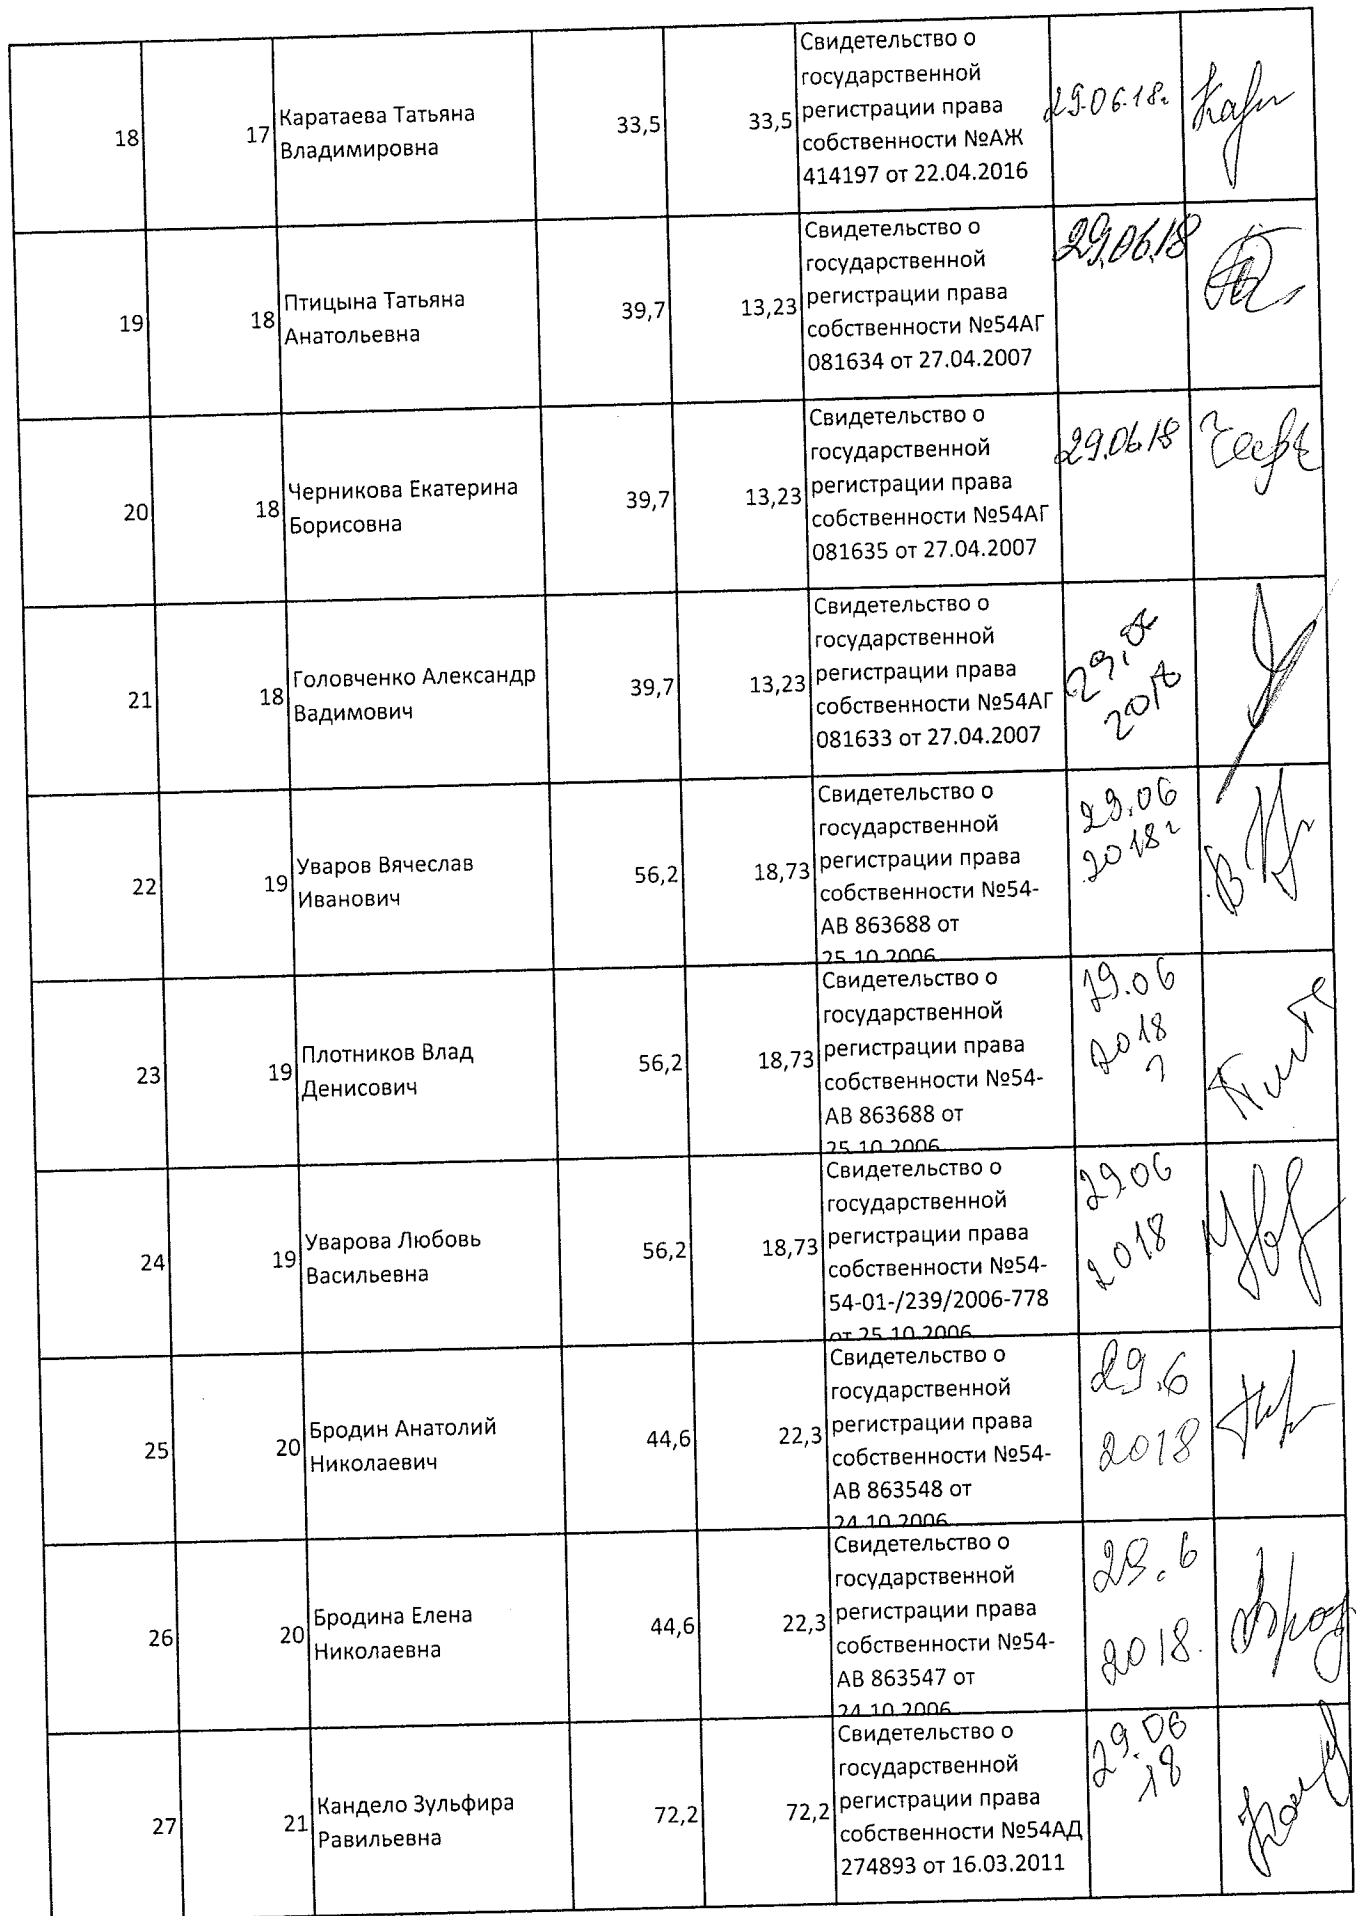 18 17 Каратаева Татьяна Владимировна 33,5 33,5 Свидетельство о
государственной
регистрации права
собственности №АЖ
414197 от 22.04.2016
29.06.18г.
19 18 Птицына Татьяна Анатольевна 39,7 13,23 Свидетельство о
государственной
регистрации права
собственности №54АГ
081634 от 27.04.2007
29.06.18
20 18 Черникова Екатерина Борисовна 39,7 13,23 Свидетельство о
государственной
регистрации права
собственности №54АГ
081635 от 27.04.2007
29.06.18
21 18 Головченко Александр Вадимович 39,7 13,23 Свидетельство о
государственной
регистрации права
собственности №54АГ
081633 от 27.04.2007
29.06
2018
22 19 Уваров Вячеслав Иванович 56,2 18,73 Свидетельство о
государственной
регистрации права
собственности №54-
АВ 863688 от
25.10.2006
29.06
2018г
23 19 Плотников Влад Денисович 56,2 18,73 Свидетельство о
государственной
регистрации права
собственности №54-
АВ 863688 от
25.10.2006
29.06
2018
г
24 19 Уварова Любовь Васильевна 56,2 18,73 Свидетельство о
государственной
регистрации права
собственности №54-
54-01-/239/2006-778
от 25.10.2006
29.06
2018
25 20 Бродин Анатолий Николаевич 44,6 22,3 Свидетельство о
государственной
регистрации права
собственности №54-
АВ 863548 от
24.10.2006
29.6
2018
26 20 Бродина Елена Николаевна 44,6 22,3 Свидетельство о
государственной
регистрации права
собственности №54-
АВ 863547 от
24.10.2006
29.6
2018.
27 21 Кандело Зульфира Равильевна 72,2 72,2 Свидетельство о
государственной
регистрации права
собственности №54АД
274893 от 16.03.2011
29.06
18